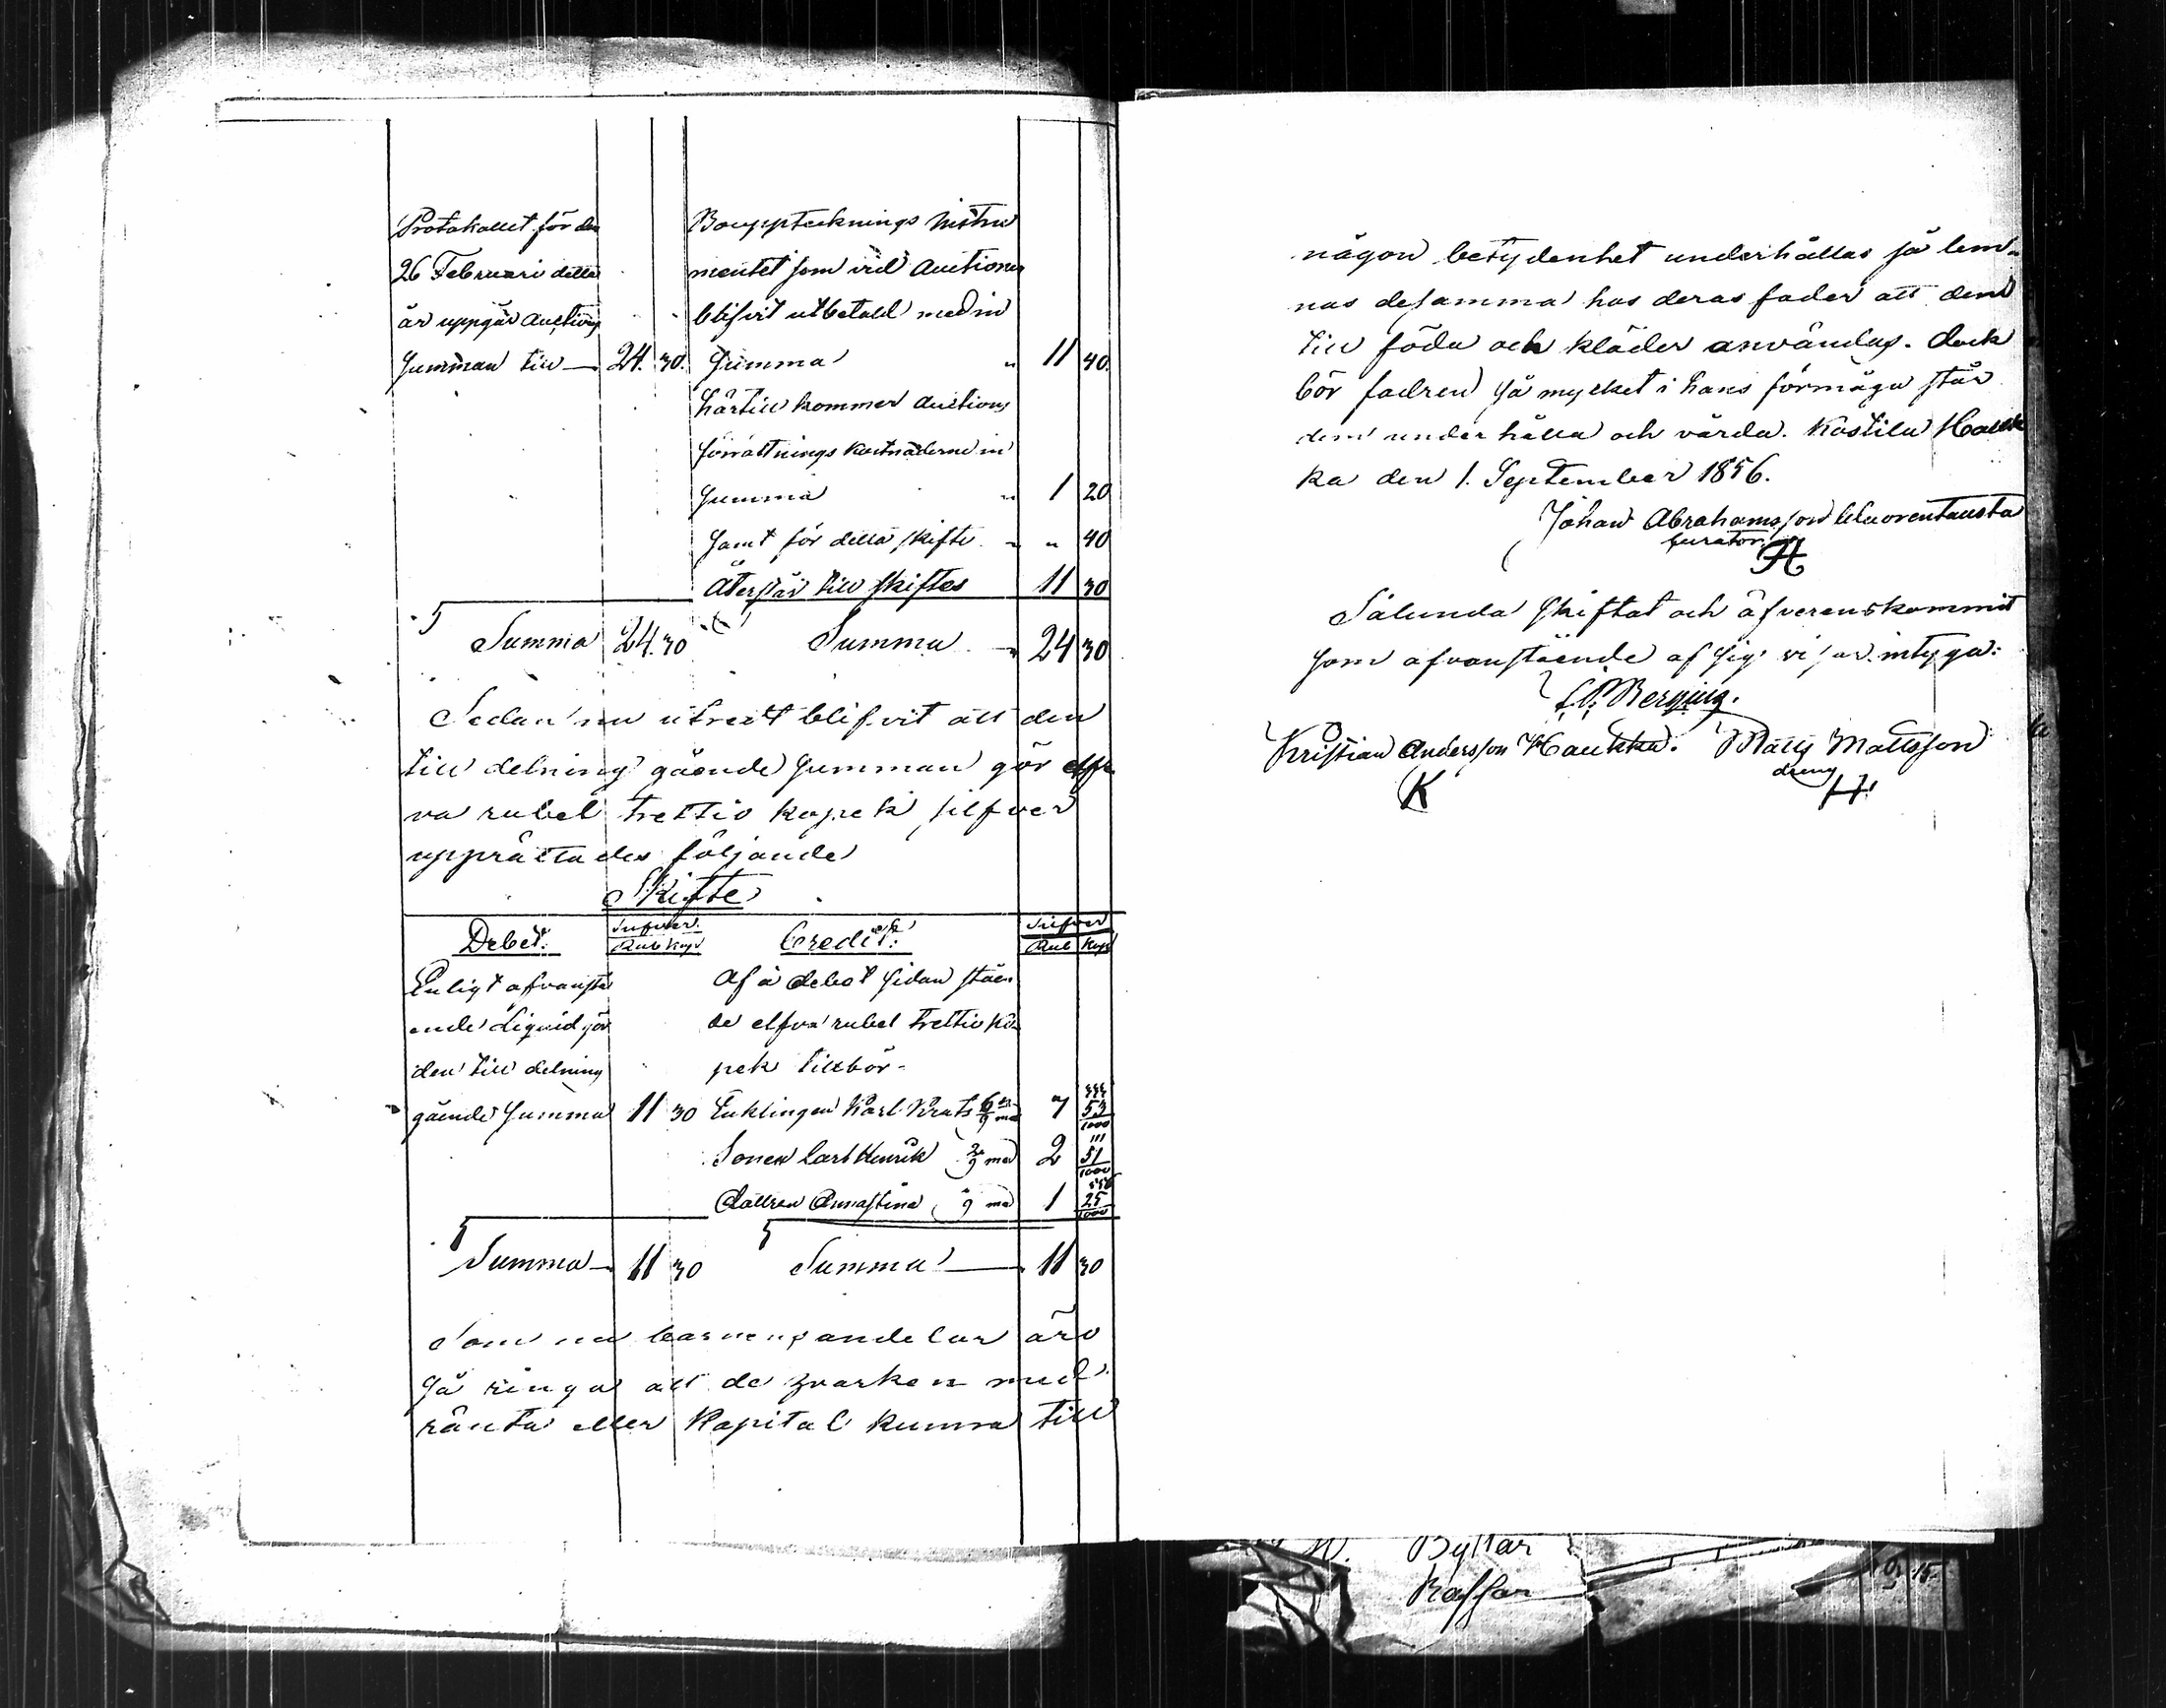 Protokollet för den
26 Februari detta
år uppgår Auctions
Summan till — 24. 30.
Boupptecknings instru
mentet som vid Auctionen
blifvit utbetald med in
Summa " 11 40.
härtill kommer Auctions
förrättnings kostnaderne in
Summa " 1 20
samt för detta skifte " " 40
Återstår till skiftes 11 30
Summa 24. 30 Summa 24 30
Sedan nu utredt blifvit att den
till delning gående Summan gör elf
va rubel trettio kopek silfver
upprättades följande
Skifte
Debet: Silfver. Rub Kop Credit: Silfver Rub Kop
Enligt afvanstå
ende Liquid gör
den till delning
gående Summa 11 30
Af å debet sidan ståen
de elfva rubel trettio ko
pek tillbör
Enklingen Karl Krats 6/9 med 7 53 333/1000
Sonen Carl Henrik 2/9 med 2 51 111/1000
Dottren Annastina 1/9 med 1 25 556/1000
Summa 11 30 Summa 11 30
Som nu barnens andelar äro
så ringa att de hvarken med
ränta eller Kapital kunna till
någon betydenhet underhållas så lem-
nas desamma hos deras fader att dem
till föda och kläder användas. dock
bör fadren så mycket i hans förmåga står
dem underhålla och vårda. Kostila Hauk
ka den 1. September 1856.
Johan Abrahamsson Vluorentausta
Curator.
Sålunda skiftat och öfverenskommit
som afvanstående af sig visar. intyga:
Kristian Andersson Haukka. Matts Mattsson
K dreng
Byttar
Kaffar